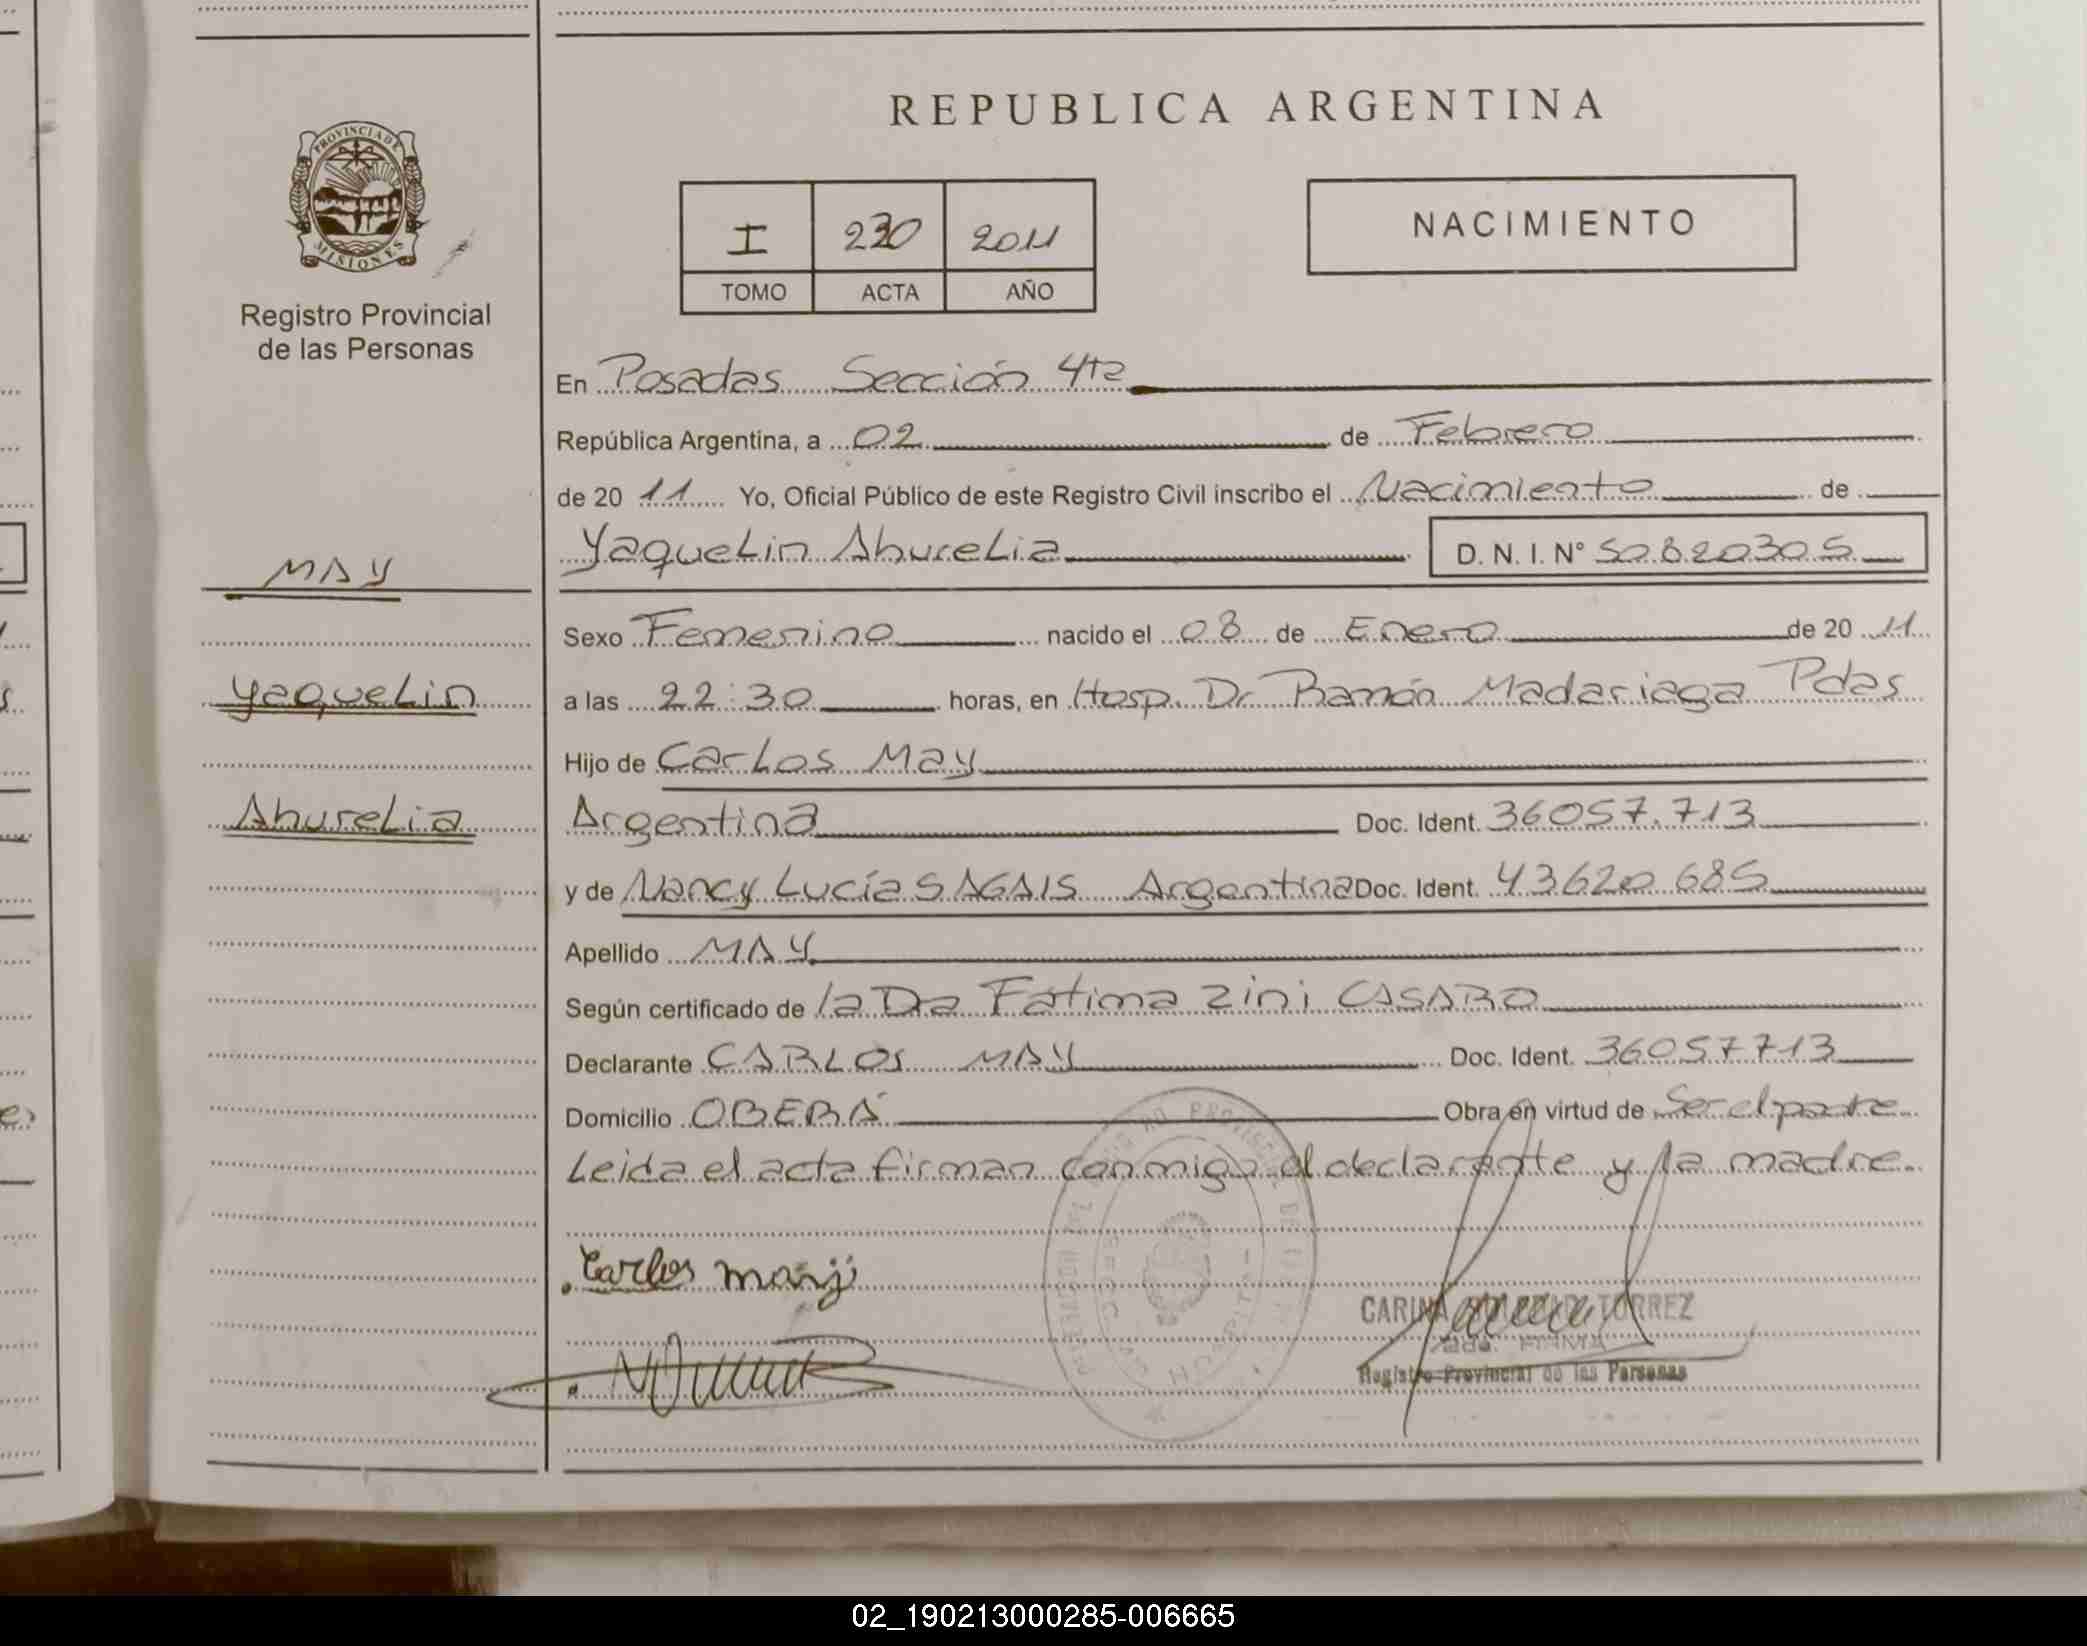 REPUBLICA ARGENTINA
PROVINCIA DE
MISIONES
Registro Provincial
de las Personas
I 230 2011
TOMO ACTA AÑO
NACIMIENTO
En Posadas Sección 4ta
República Argentina, a 02 de Febrero
de 20 11 Yo, Oficial Público de este Registro Civil inscribo el Nacimiento de
Yaquelin Ahurelia D. N. I. N° 50820305
MAY
Sexo Femenino nacido el 08 de Enero de 20 11
Yaquelin
a las 22:30 horas, en Hosp. Dr Ramón Madariaga Pdas
Hijo de Carlos May
Ahurelia
Argentina Doc. Ident. 36057.713
y de Nancy Lucía SAGAIS Argentina Doc. Ident. 43620685
Apellido MAY
Según certificado de la Dra Fátima Zini CASARO
Declarante CARLOS MAY Doc. Ident. 36057713
Domicilio OBERÁ Obra en virtud de Ser el padre
Leida el acta firman conmigo el declarante y la madre
Carlos may
CARINA TORREZ
FIRMA
Registro Provincial de las Personas
02_190213000285-006665